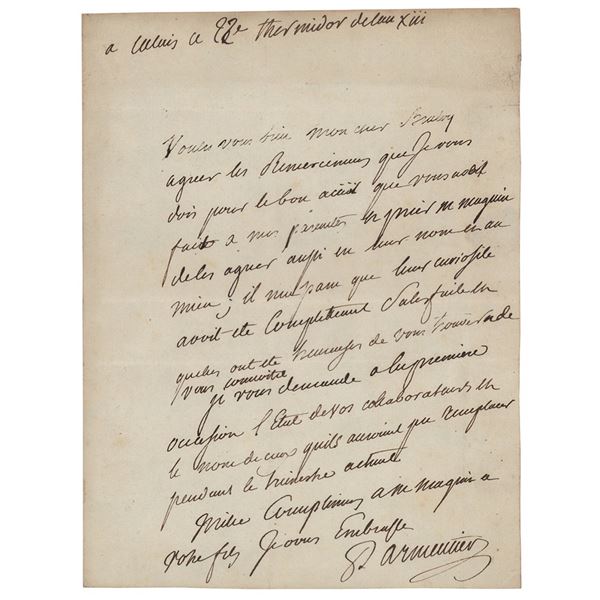 a Calais ce 22e thermidor de lan xiii
Voulez vous bien mon cher
agreer les Remerciemens que Je vous
dois pour le bon acüil que vous avez
fait a mes parentes et prier m maquin
de les agreer aussi en leur nom et au
mien; il me paroit que leur curiosité
avoit ete Complettement Satisfaite et
quelles ont ete heureuses de vous trouver et de
vous connoitre
je vous demande a la premiere
occasion l'Etat de vos collaborateurs et
le nom de ceux quils auroient pu remplacer
pendant le trimestre actuel
Mille Complimens a m maquin a
votre fils Je vous Embrasse
Parmentier